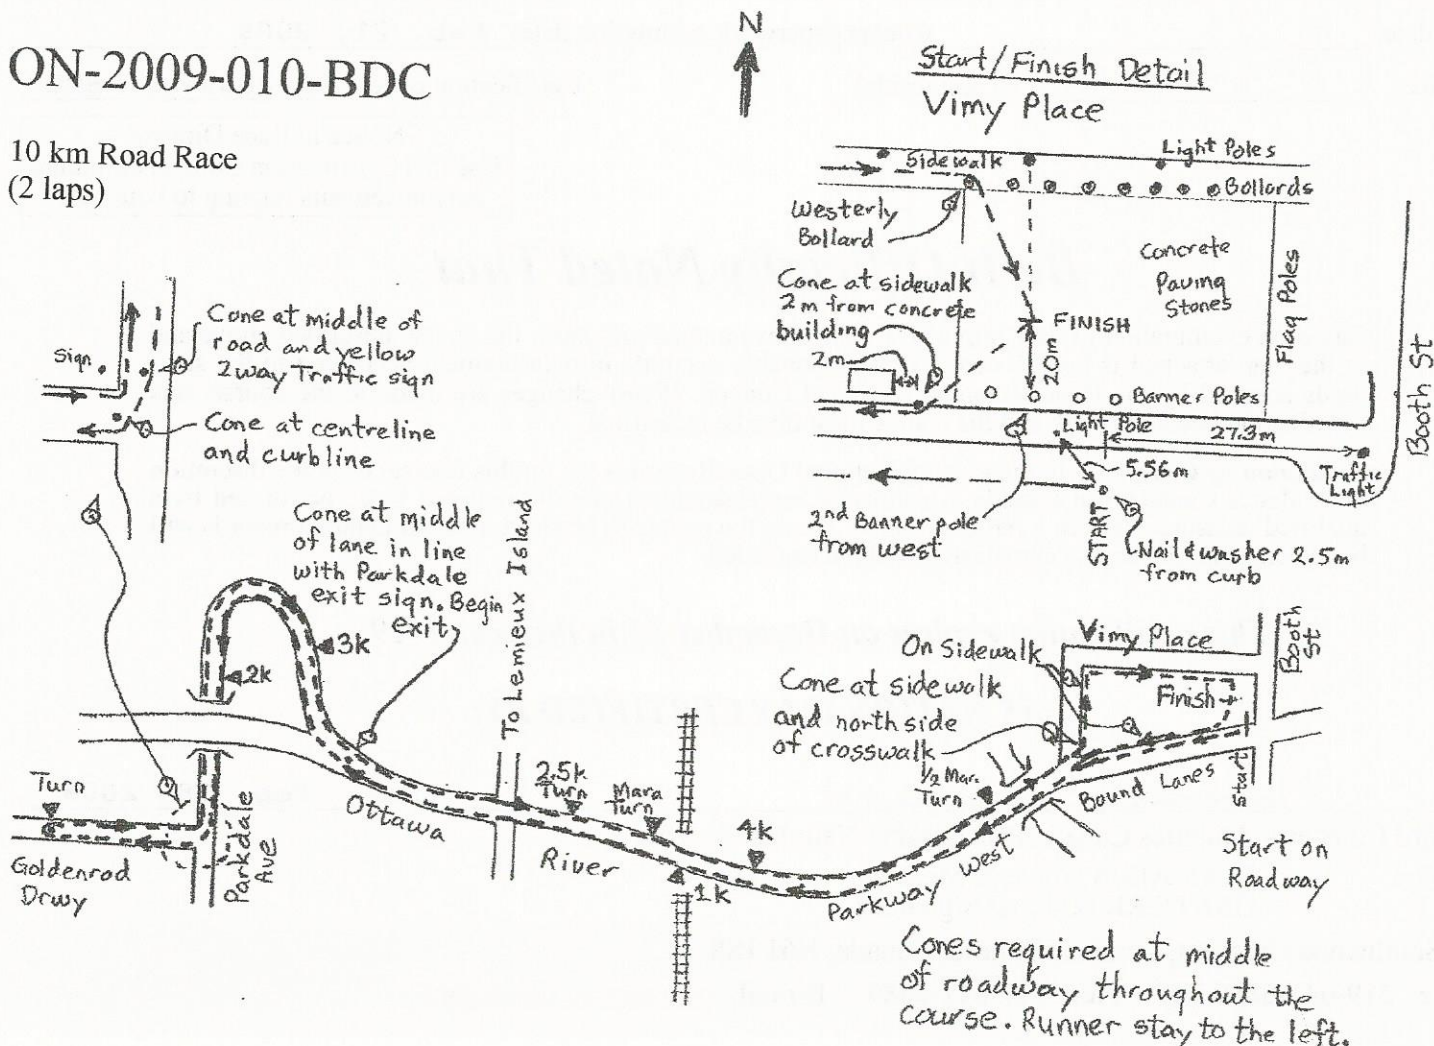 ON-2009-010-BDC
10 km Road Race
(2 laps)
N
Start/Finish Detail
Vimy Place
Sidewalk
Light Poles
Bollards
Westerly
Bollard
Concrete
Paving
Stones
Flag Poles
Booth St
Cone at sidewalk
2m from concrete
building
2m
FINISH
20m
Banner Poles
Light Pole
27.3m
5.56m
Traffic
Light
2nd Banner pole
from west
START
Nail & washer 2.5m
from curb
Sign
Cone at middle of
road and yellow
2way Traffic sign
Cone at centreline
and curbline
Cone at middle
of lane in line
with Parkdale
exit sign. Begin
exit
To Lemieux Island
3k
2k
Turn
Goldenrod
Drwy
Parkdale
Ave
Ottawa
River
Parkway
West
Bound Lanes
2.5k
Turn
Mara
Turn
4k
1k
1/2 Mar.
Turn
On Sidewalk
Cone at sidewalk
and north side
of crosswalk
Vimy Place
Booth
St
Finish
Start
Start on
Roadway
Cones required at middle
of roadway throughout the
course. Runner stay to the left.